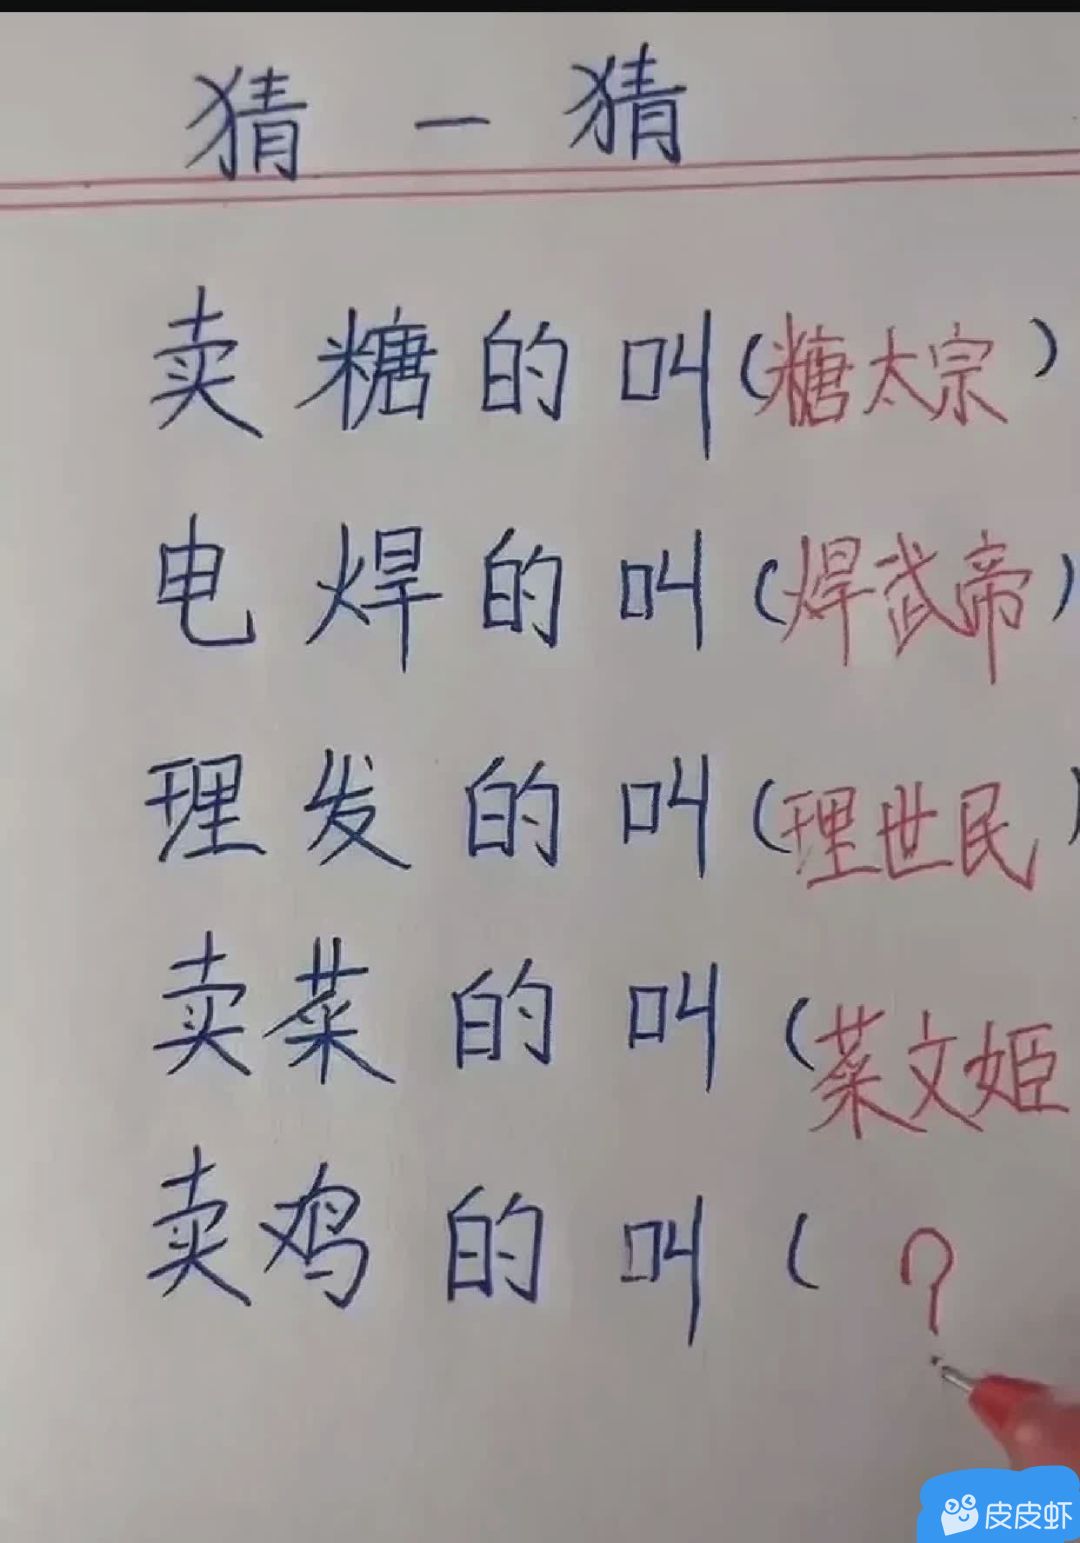 猜一猜
卖糖的叫(糖太宗)
电焊的叫(焊武帝)
理发的叫(理世民)
卖菜的叫(菜文姬
卖鸡的叫(?
皮皮虾